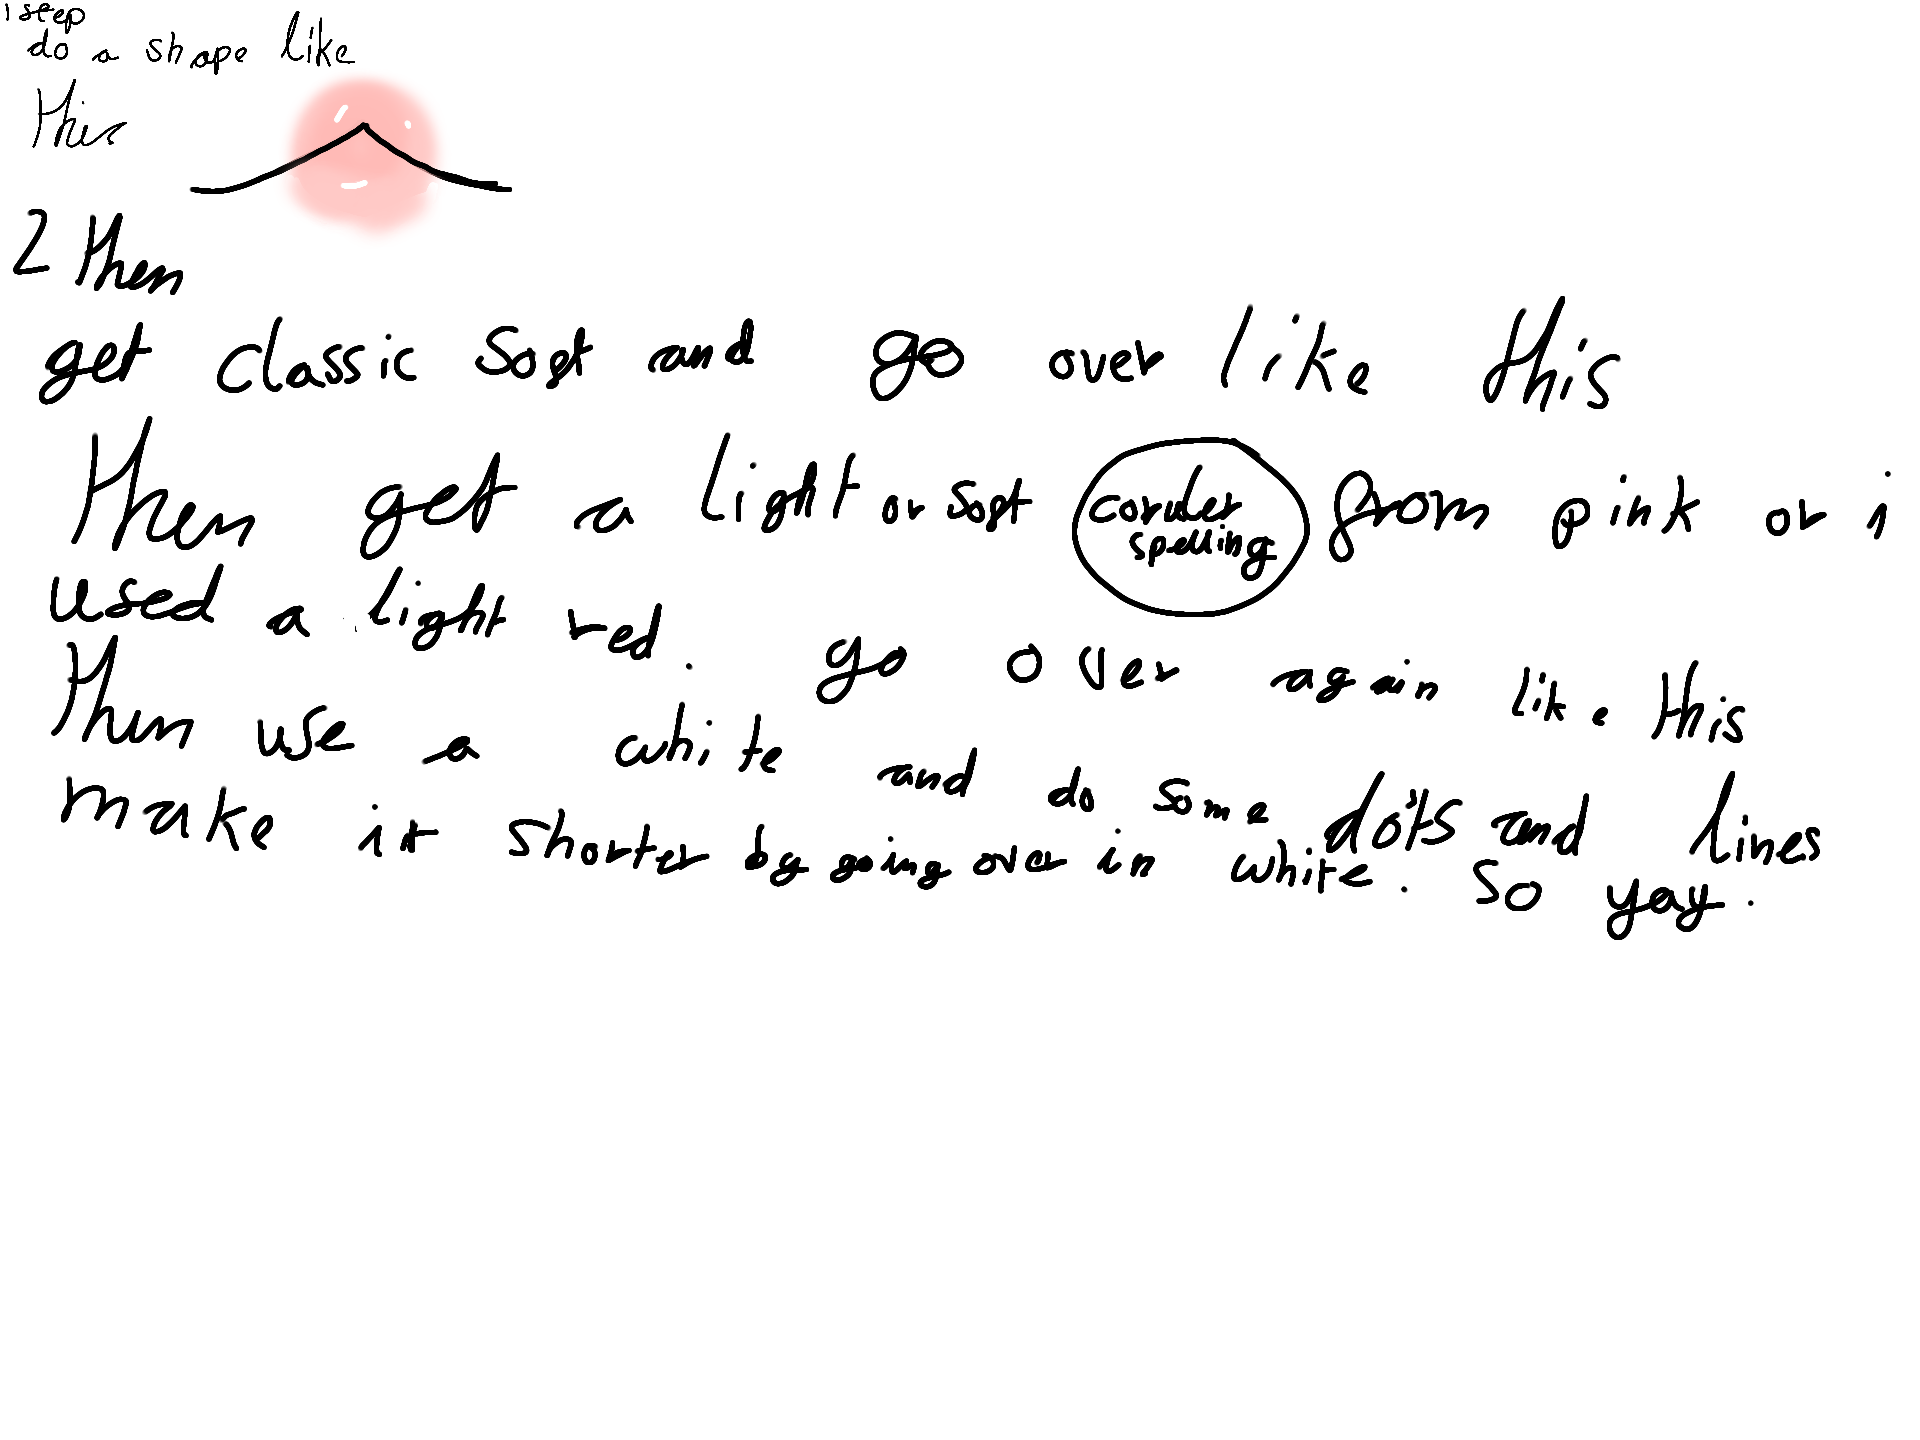 1 step
do a shape like
this
2 then
get classic soft and go over like this
then get a light or soft coruler spelling from pink or i
used a light red. go over again like this
then use a white and do some dots and lines
make it shorter by going over in white. so yay.